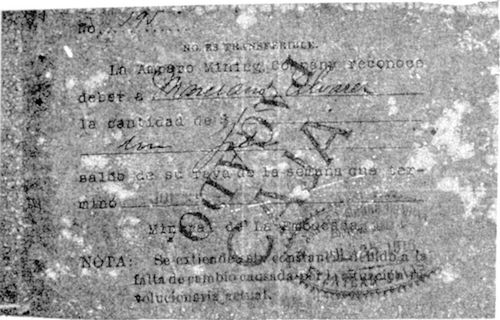 No. 195
NO ES TRANSFERIBLE.
La Amparo Mining Company reconoce
deber a Marciano Alvarez
la cantidad de $
un peso
saldo de su raya de la semana que ter-
minó
Mineral de La
NOTA: Se extiende esta constancia debido a la
falta de cambio causada por la situación re-
volucionaria actual.
PAGADO
CAJA